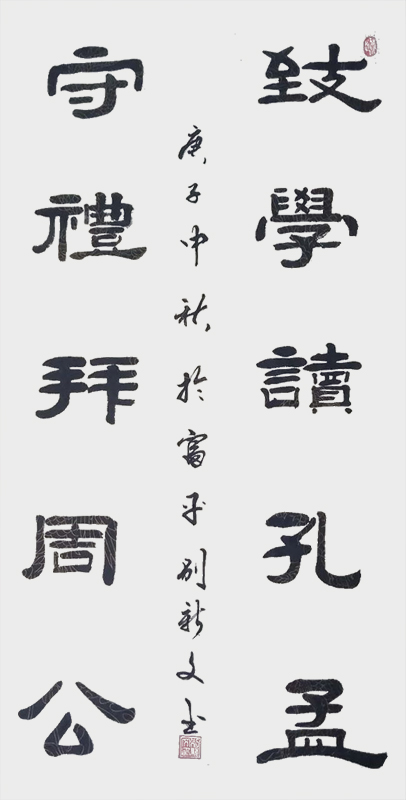 致學讀孔孟
守禮拜周公
庚子中秋於富平別新文书